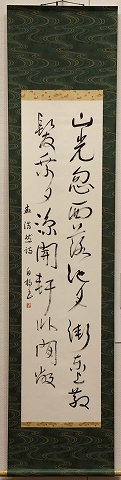 山光忽西落池月漸東上散
髮乘夕涼開軒臥閑敞
孟浩然詩